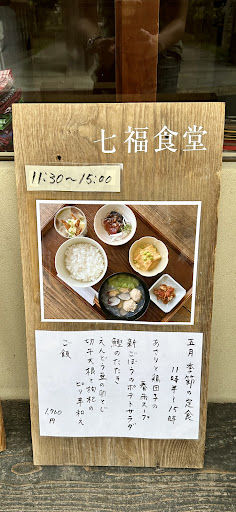 七福食堂
11:30~15:00
五月 季節の定食
11時半〜15時
あさりと鶏団子の
春雨スープ
新ごぼうのポテトサラダ
鰹のたたき
えんどう豆の卵とじ
切干大根と枸杞の
ピリ辛和え
ご飯
円